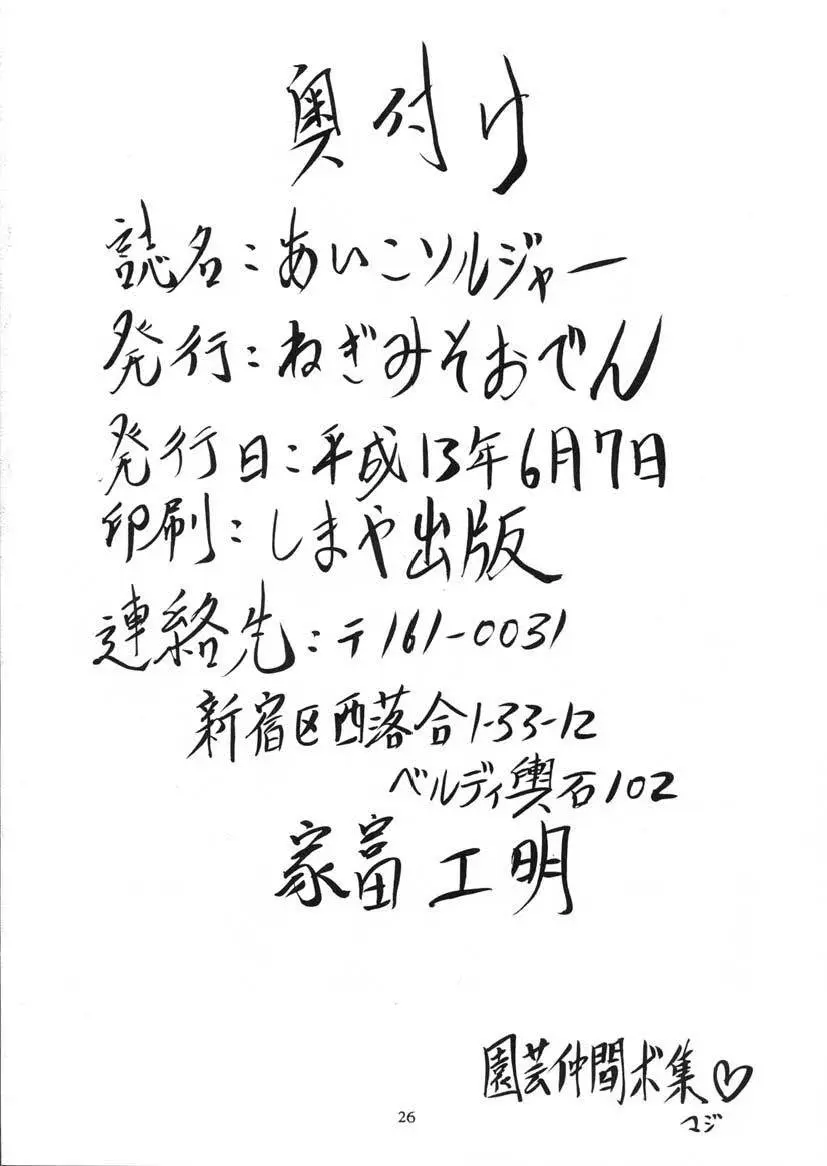 奥付け
誌名：あいこソルジャー
発行：ねぎみそおでん
発行日：平成13年6月7日
印刷：しまや出版
連絡先：〒161-0031
新宿区西落合1-33-12
ベルディ輿石102
家富工明
園芸仲間ボ集♡
マジ
26